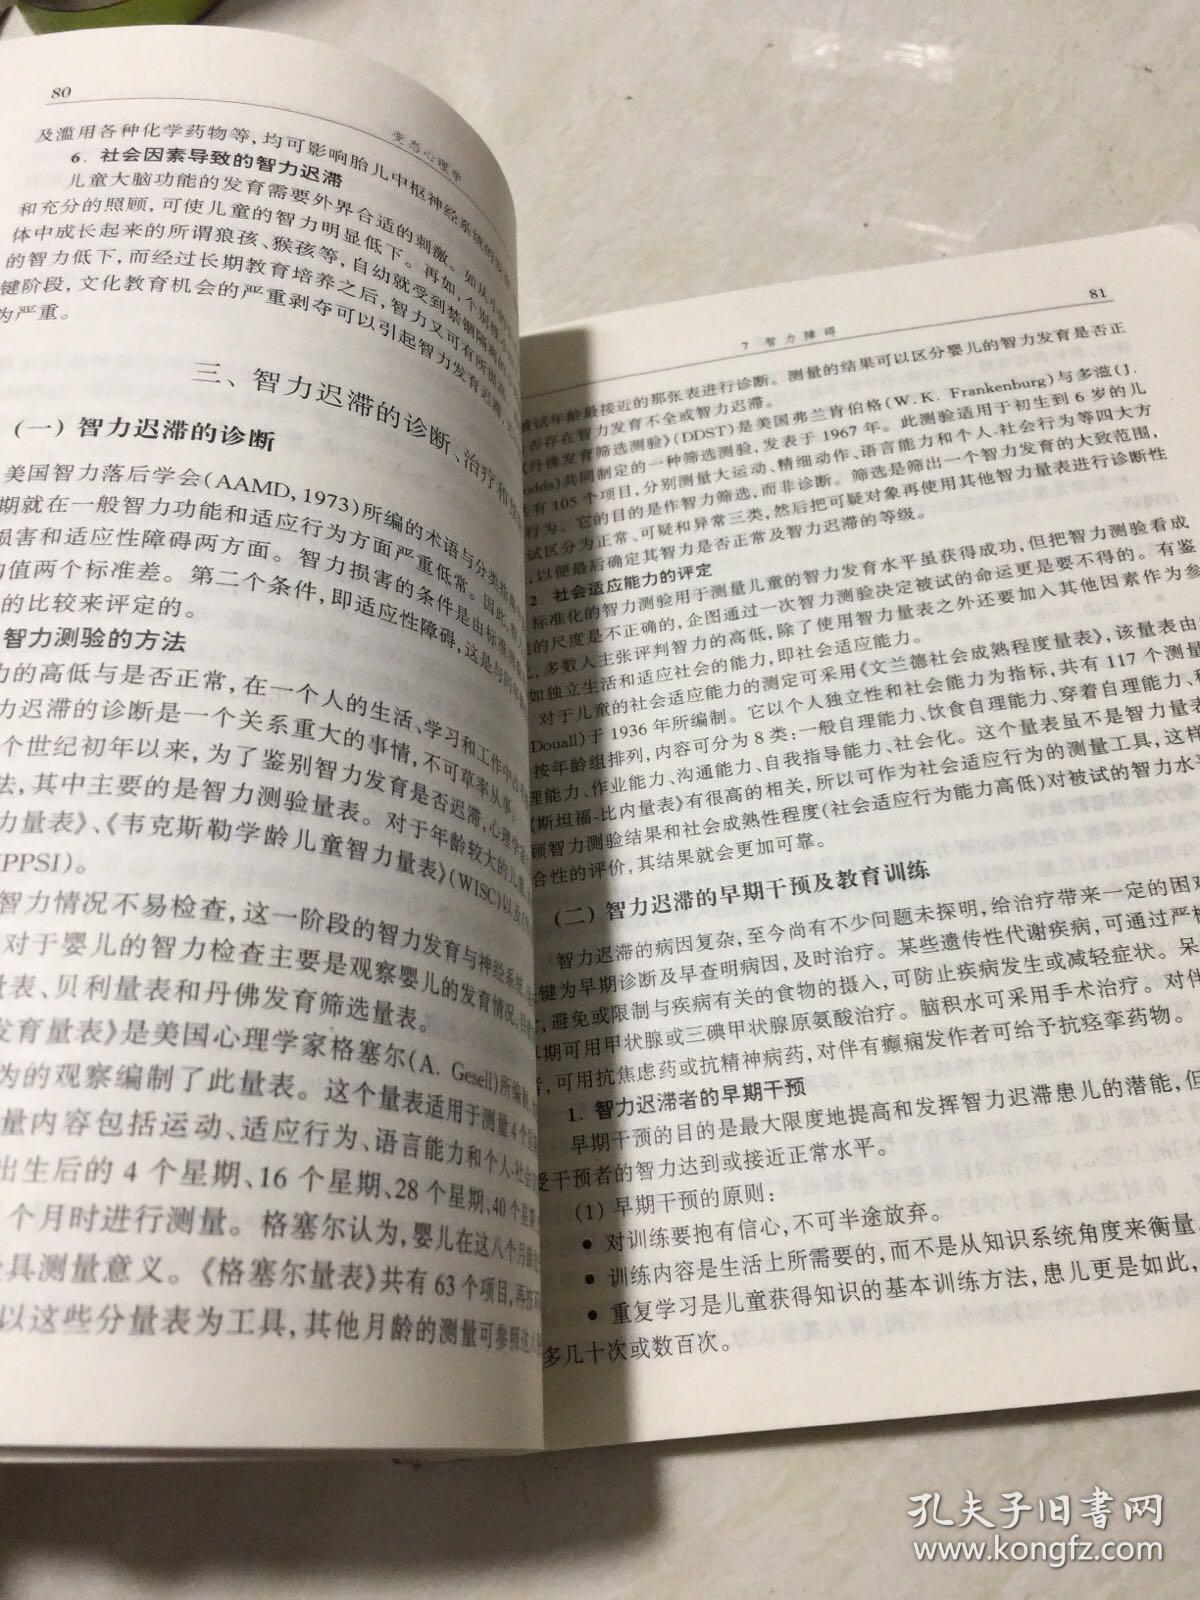 80
变态心理学
及滥用各种化学药物等,均可影响胎儿中枢神经系统的发育
6. 社会因素导致的智力迟滞
儿童大脑功能的发育需要外界合适的刺激。如从小
和充分的照顾,可使儿童的智力明显低下。再如,个别
体中成长起来的所谓狼孩、猴孩等,自幼就受到禁锢隔离的小
的智力低下,而经过长期教育培养之后,智力又可有所提高
键阶段,文化教育机会的严重剥夺可以引起智力发育迟滞
为严重。
三、智力迟滞的诊断、治疗和
(一) 智力迟滞的诊断
美国智力落后学会(AAMD,1973)所编的术语与分类
期就在一般智力功能和适应行为方面严重低常。因此,
损害和适应性障碍两方面。智力损害的条件是由标准
均值两个标准差。第二个条件,即适应性障碍,这是与同
的比较来评定的。
智力测验的方法
力的高低与是否正常,在一个人的生活、学习和工作中占
力迟滞的诊断是一个关系重大的事情,不可草率从事。
个世纪初年以来,为了鉴别智力发育是否迟滞,心理学
法,其中主要的是智力测验量表。对于年龄较大的儿童
力量表》、《韦克斯勒学龄儿童智力量表》(WISC)以及
PPSI)。
智力情况不易检查,这一阶段的智力发育与神经系统
对于婴儿的智力检查主要是观察婴儿的发育情况,
量表、贝利量表和丹佛发育筛选量表。
发育量表》是美国心理学家格塞尔(A. Gesell)所编制,
为的观察编制了此量表。这个量表适用于测量4个星
量内容包括运动、适应行为、语言能力和个人-社会
出生后的 4 个星期、16 个星期、28 个星期、40 个星期
个月时进行测量。格塞尔认为,婴儿在这八个月龄
具测量意义。《格塞尔量表》共有 63 个项目,再
以这些分量表为工具,其他月龄的测量可参照这
81
7 智力障碍
被试年龄最接近的那张表进行诊断。测量的结果可以区分婴儿的智力发育是否正
否存在智力发育不全或智力迟滞。
《丹佛发育筛选测验》(DDST)是美国弗兰肯伯格(W. K. Frankenburg)与多滋(J.
odds)共同制定的一种筛选测验,发表于 1967 年。此测验适用于初生到 6 岁的儿
共有 105 个项目,分别测量大运动、精细动作、语言能力和个人-社会行为等四大方
行为。它的目的是作智力筛选,而非诊断。筛选是筛出一个智力发育的大致范围,
试区分为正常、可疑和异常三类,然后把可疑对象再使用其他智力量表进行诊断性
,以便最后确定其智力是否正常及智力迟滞的等级。
2. 社会适应能力的评定
标准化的智力测验用于测量儿童的智力发育水平虽获得成功,但把智力测验看成
能的尺度是不正确的,企图通过一次智力测验决定被试的命运更是要不得的。有鉴
,多数人主张评判智力的高低,除了使用智力量表之外还要加入其他因素作为参
如独立生活和适应社会的能力,即社会适应能力。
对于儿童的社会适应能力的测定可采用《文兰德社会成熟程度量表》,该量表由
Douall)于 1936 年所编制。它以个人独立性和社会能力为指标,共有 117 个测量
按年龄组排列,内容可分为 8 类:一般自理能力、饮食自理能力、穿着自理能力、
理能力、作业能力、沟通能力、自我指导能力、社会化。这个量表虽不是智力量表
《斯坦福-比内量表》有很高的相关,所以可作为社会适应行为的测量工具,这样
顾智力测验结果和社会成熟性程度(社会适应行为能力高低)对被试的智力水平
合性的评价,其结果就会更加可靠。
(二) 智力迟滞的早期干预及教育训练
智力迟滞的病因复杂,至今尚有不少问题未探明,给治疗带来一定的困难
键为早期诊断及早查明病因,及时治疗。某些遗传性代谢疾病,可通过严格
,避免或限制与疾病有关的食物的摄入,可防止疾病发生或减轻症状。呆
早期可用甲状腺或三碘甲状腺原氨酸治疗。脑积水可采用手术治疗。对伴
者,可用抗焦虑药或抗精神病药,对伴有癫痫发作者可给予抗痉挛药物。
1. 智力迟滞者的早期干预
早期干预的目的是最大限度地提高和发挥智力迟滞患儿的潜能,但
受干预者的智力达到或接近正常水平。
(1) 早期干预的原则:
● 对训练要抱有信心,不可半途放弃。
● 训练内容是生活上所需要的,而不是从知识系统角度来衡量
● 重复学习是儿童获得知识的基本训练方法,患儿更是如此,
多几十次或数百次。
孔夫子旧书网
www.kongfz.com